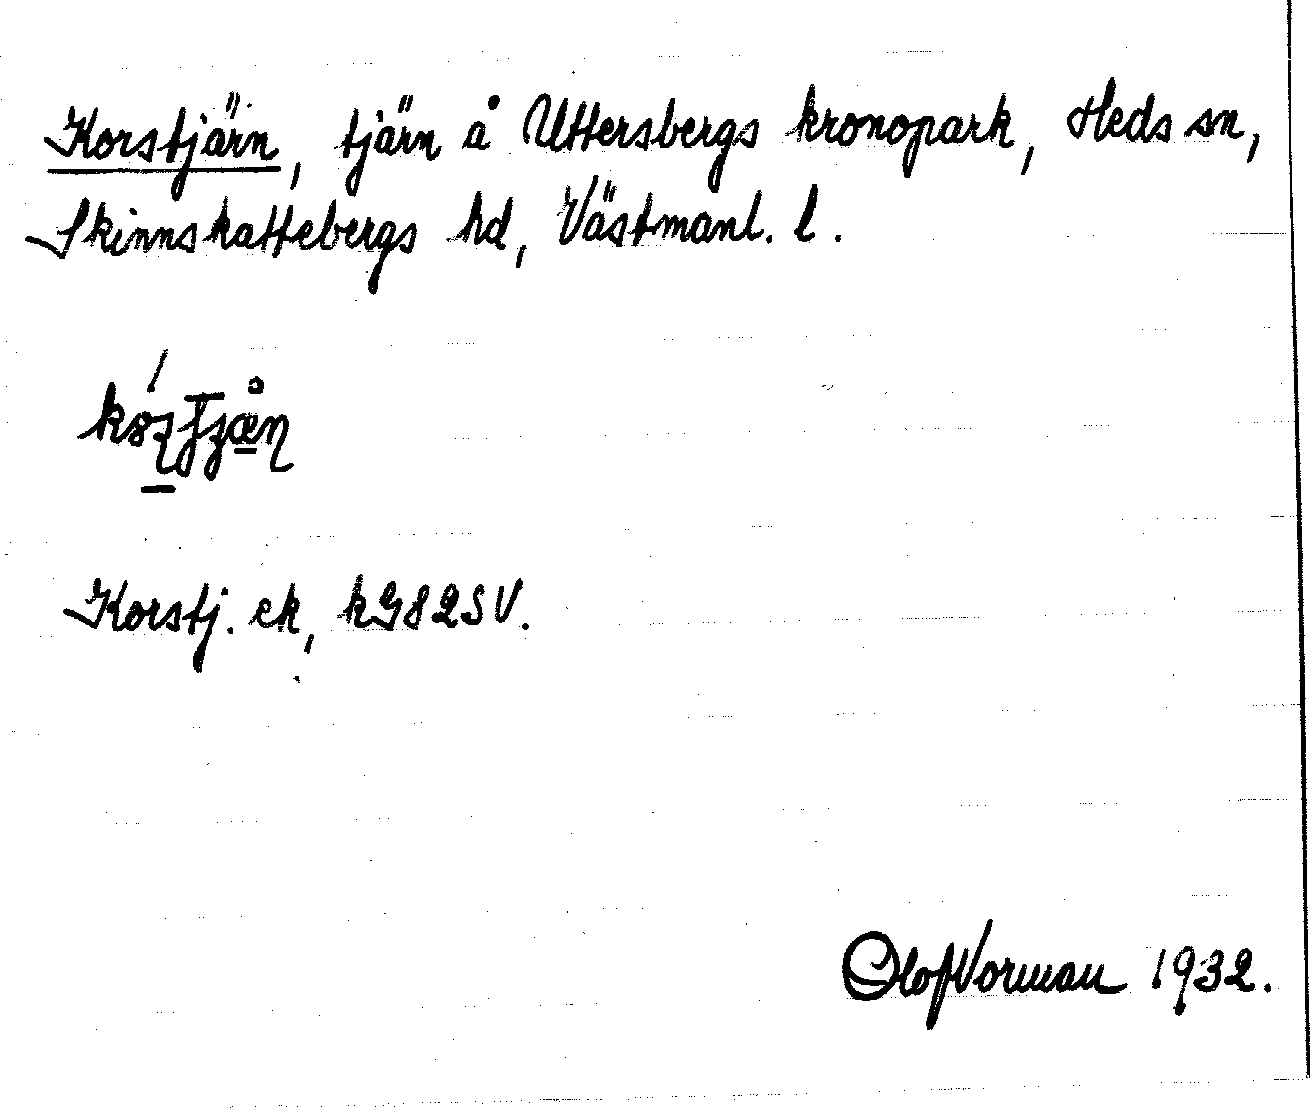 Korstjärn, tjärn å Uttersbergs kronopark, Heds sn,
Skinnskattebergs hd, Västmanl. l.
Korstj. ek, kG82SV.
Olof Vorman 1932.